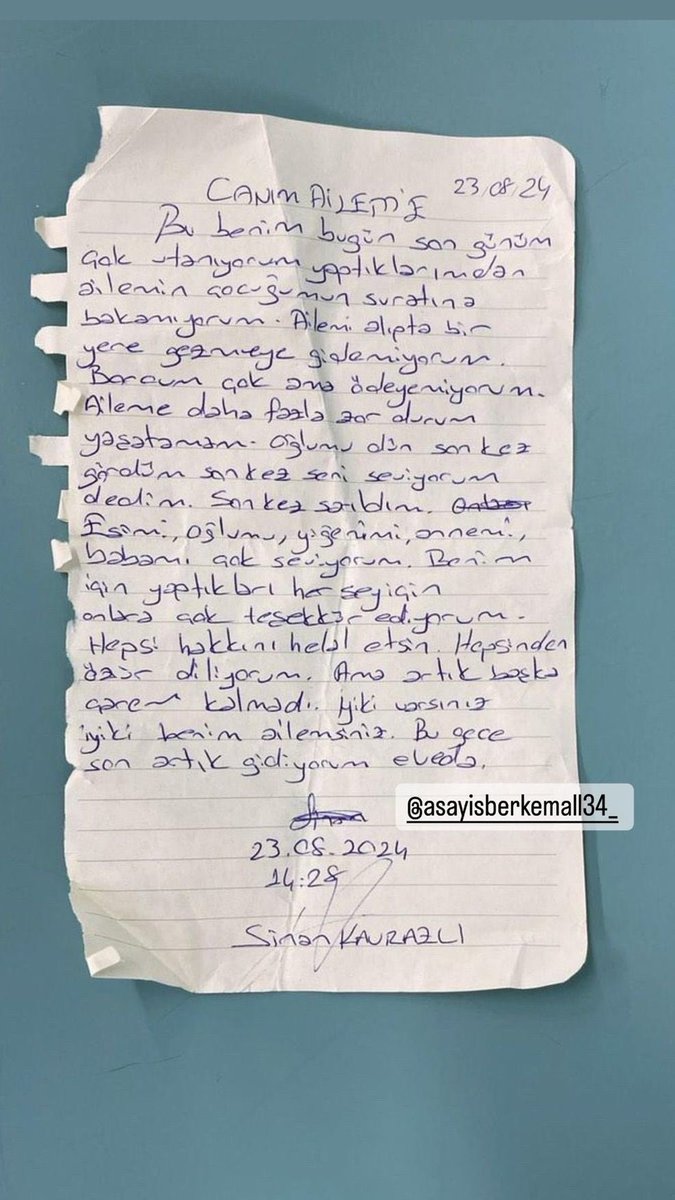 CANIM AİLEM'E 23/08/24
Bu benim bugün son günüm
çok utanıyorum yaptıklarımdan
ailemin çocuğumun suratına
bakamıyorum. Ailemi alıpta bir
yere gezmeye gidemiyorum.
Borcum çok ama ödeyemiyorum.
Aileme daha fazla zor durum
yaşatamam. Oğlumu dün son kez
gördüm son kez seni seviyorum
dedim. Son kez sarıldım.
Eşimi, oğlumu, yiğenimi, annemi,
babamı çok seviyorum. Benim
için yaptıkları her şey için
onlara çok teşekkür ediyorum.
Hepsi hakkını helal etsin. Hepsinden
özür diliyorum. Ama artık başka
çarem kalmadı. iyiki varsınız
iyiki benim ailemsiniz. Bu gece
son artık gidiyorum elveda.
@asayisberkemall34_
23.08.2024
14:28
Sinan KAVRAZLI